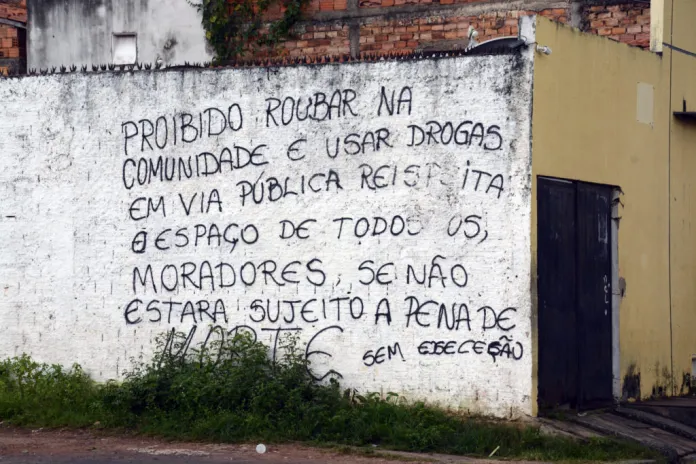 PROIBIDO ROUBAR NA
COMUNIDADE E USAR DROGAS
EM VIA PÚBLICA
O ESPAÇO DE TODOS OS,
MORADORES, SE NÃO
ESTARA SUJEITO A PENA DE
MORTE SEM ESECEÇÃO